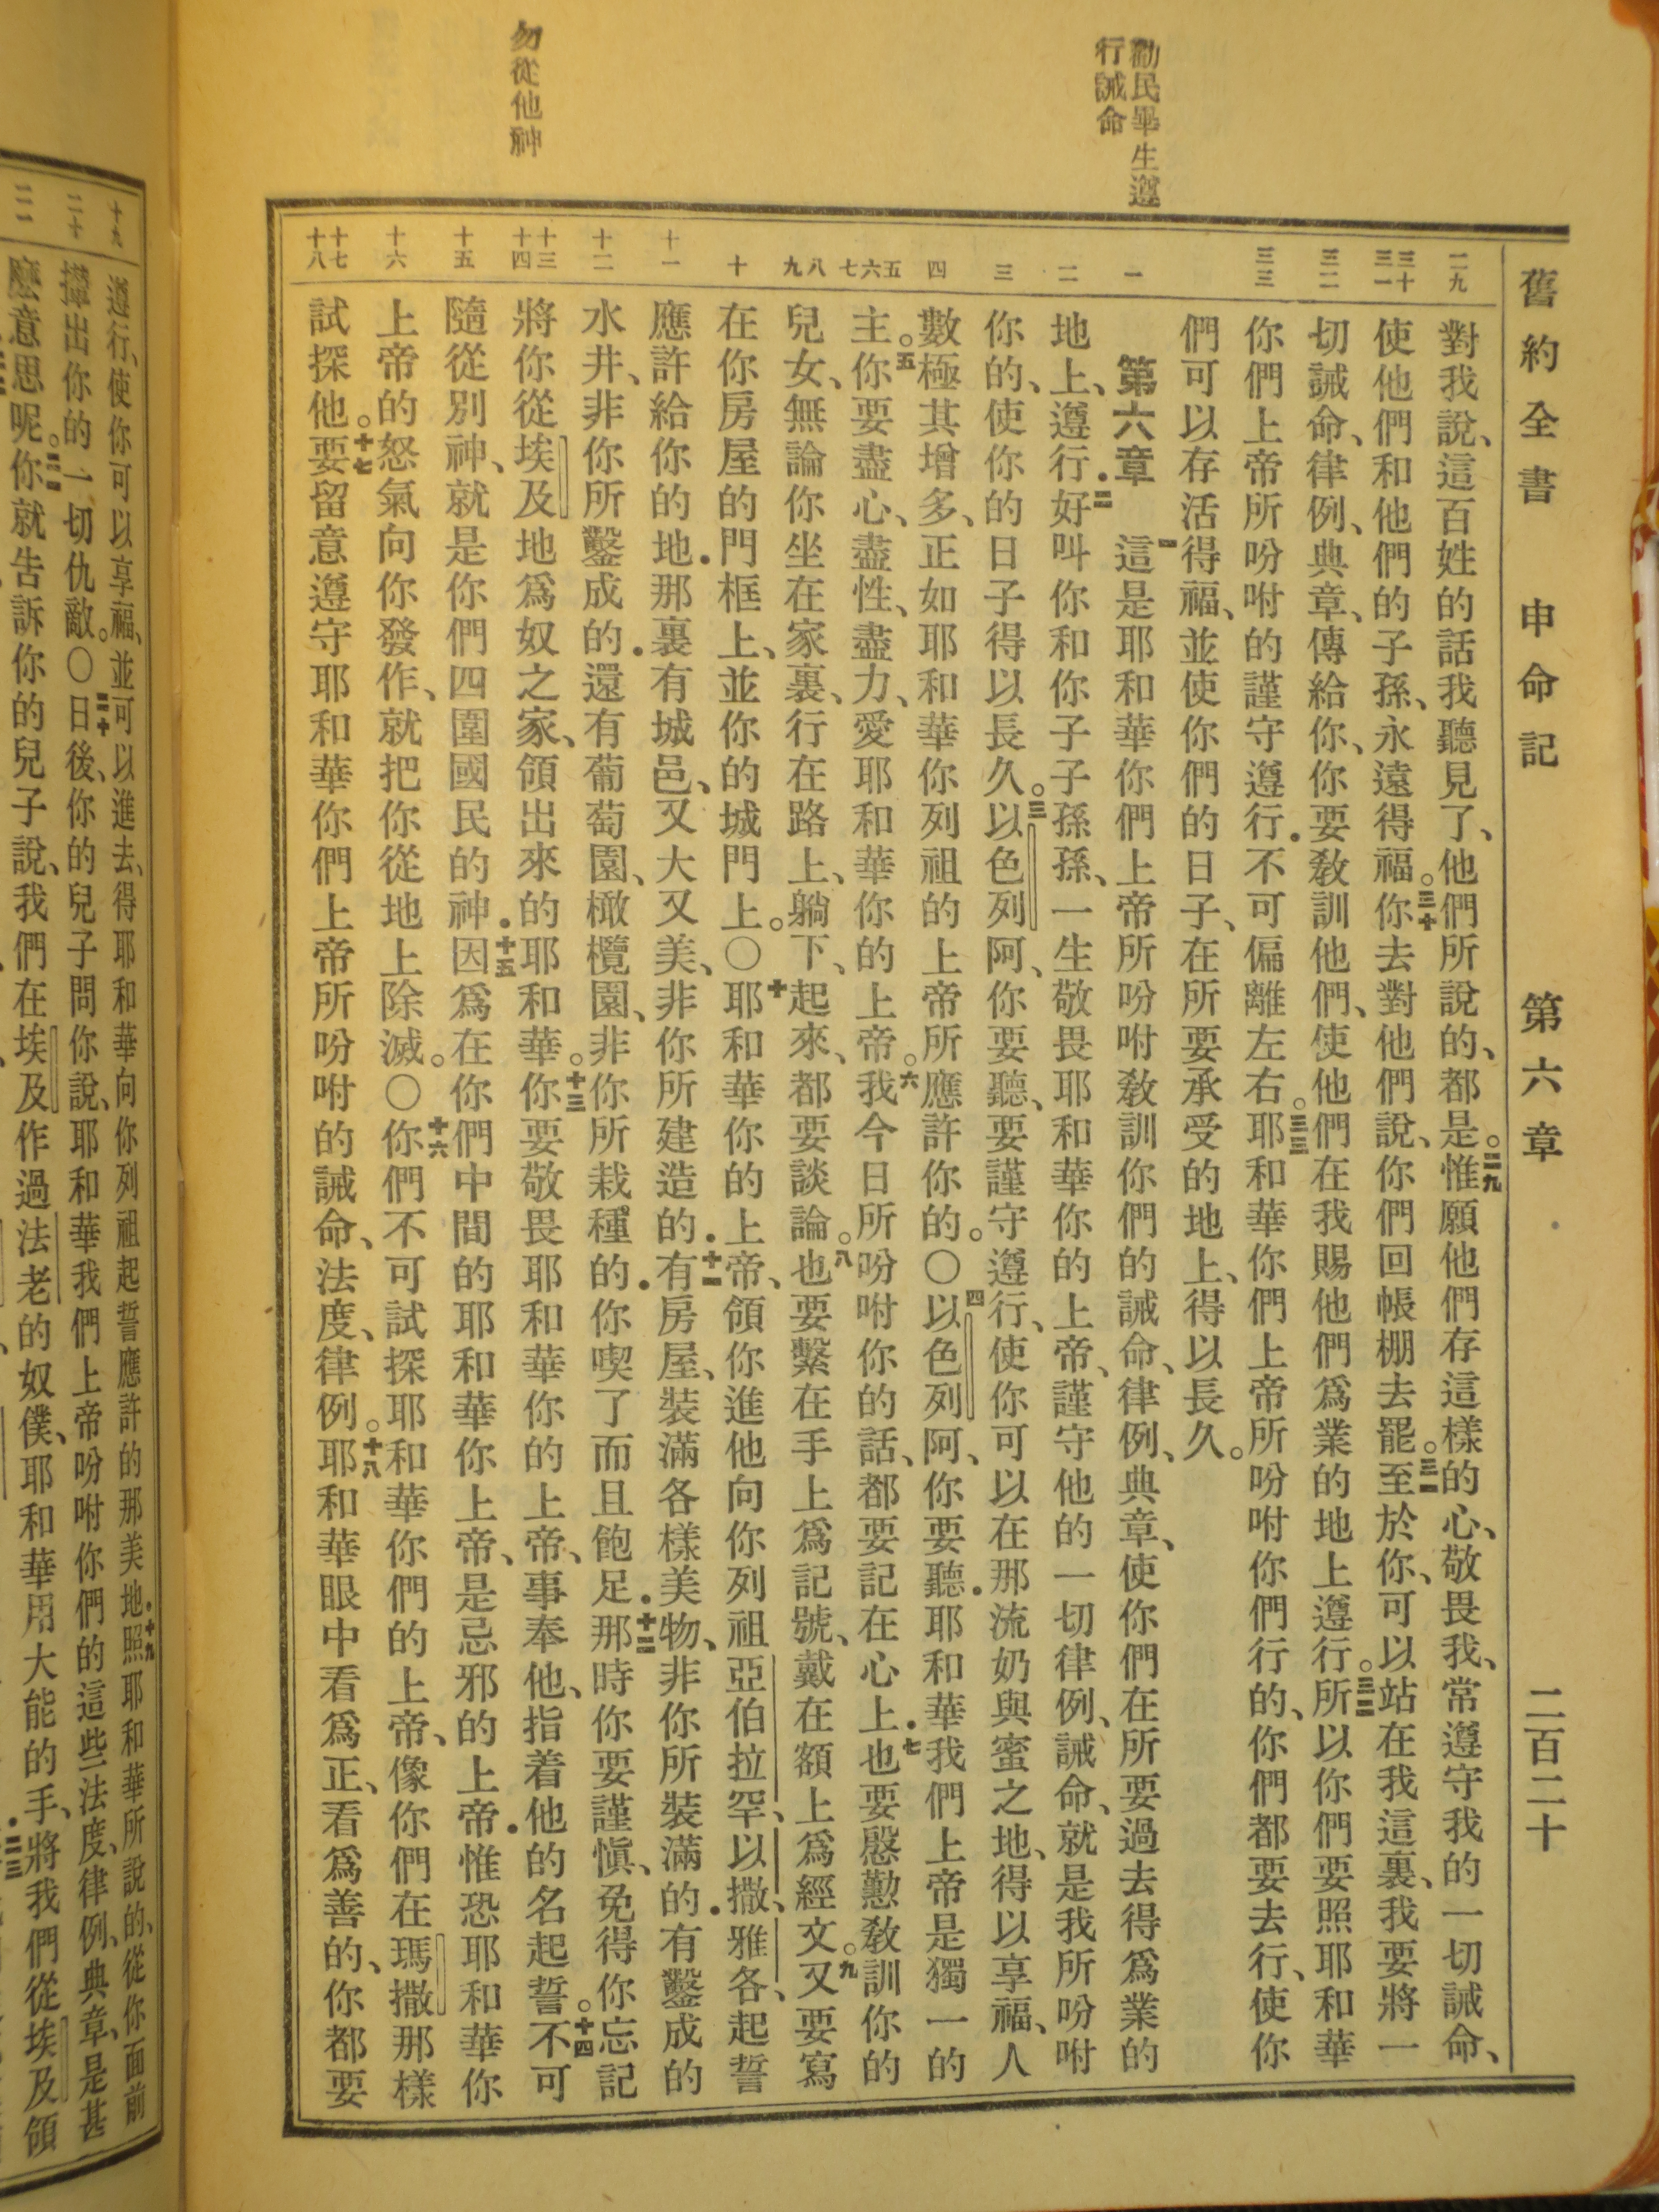 舊約全書 申命記 第六章 二百二十
勸民畢生遵
行誡命
勿從他神
二九
三十 三一
三二
三三
一
二
三
四
五 六 七
八 九
十
十一
十二
十三 十四
十五
十六
十七 十八
對我說、這百姓的話我聽見了、他們所說的、都是。二九惟願他們存這樣的心、敬畏我、常遵守我的一切誡命、
使他們和他們的子孫、永遠得福。三十你去對他們說、你們回帳棚去罷。三一至於你、可以站在我這裏、我要將一
切誡命、律例、典章、傳給你、你要敎訓他們、使他們在我賜他們爲業的地上遵行。三二所以你們要照耶和華
你們上帝所吩咐的謹守遵行．不可偏離左右。三三耶和華你們上帝所吩咐你們行的、你們都要去行、使你
們可以存活得福、並使你們的日子、在所要承受的地上、得以長久。
第六章 一這是耶和華你們上帝所吩咐敎訓你們的誡命、律例、典章、使你們在所要過去得爲業的
地上、遵行．二好叫你和你子子孫孫、一生敬畏耶和華你的上帝、謹守他的一切律例、誡命、就是我所吩咐
你的、使你的日子得以長久。三以色列阿、你要聽、要謹守遵行、使你可以在那流奶與蜜之地、得以享福、人
數極其增多、正如耶和華你列祖的上帝所應許你的。〇四以色列阿、你要聽．耶和華我們上帝是獨一的
主。五你要盡心、盡性、盡力、愛耶和華你的上帝。六我今日所吩咐你的話、都要記在心上．七也要慇懃敎訓你的
兒女、無論你坐在家裏、行在路上、躺下、起來、都要談論。八也要繫在手上爲記號、戴在額上爲經文。九又要寫
在你房屋的門框上、並你的城門上。〇十耶和華你的上帝、領你進他向你列祖亞伯拉罕、以撒、雅各、起誓
應許給你的地．那裏有城邑、又大又美、非你所建造的．十一有房屋、裝滿各樣美物、非你所裝滿的．有鑿成的
水井、非你所鑿成的．還有葡萄園、橄欖園、非你所栽種的．你喫了而且飽足．十二那時你要謹愼、免得你忘記
將你從埃及地爲奴之家、領出來的耶和華。十三你要敬畏耶和華你的上帝、事奉他、指着他的名起誓。十四不可
隨從別神、就是你們四圍國民的神．十五因爲在你們中間的耶和華你上帝、是忌邪的上帝．惟恐耶和華你
上帝的怒氣向你發作、就把你從地上除滅。〇十六你們不可試探耶和華你們的上帝、像你們在瑪撒那樣
試探他。十七要留意遵守耶和華你們上帝所吩咐的誡命、法度、律例。十八耶和華眼中看爲正、看爲善的、你都要
十九
二十
二一
遵行、使你可以享福、並可以進去、得耶和華向你列祖起誓應許的那美地．十九照耶和華所說的、從你面前
攆出你的一切仇敵。〇二十日後、你的兒子問你說、耶和華我們上帝吩咐你們的這些法度、律例、典章、是甚
麼意思呢。二一你就告訴你的兒子說、我們在埃及作過法老的奴僕、耶和華用大能的手、將我們從埃及領